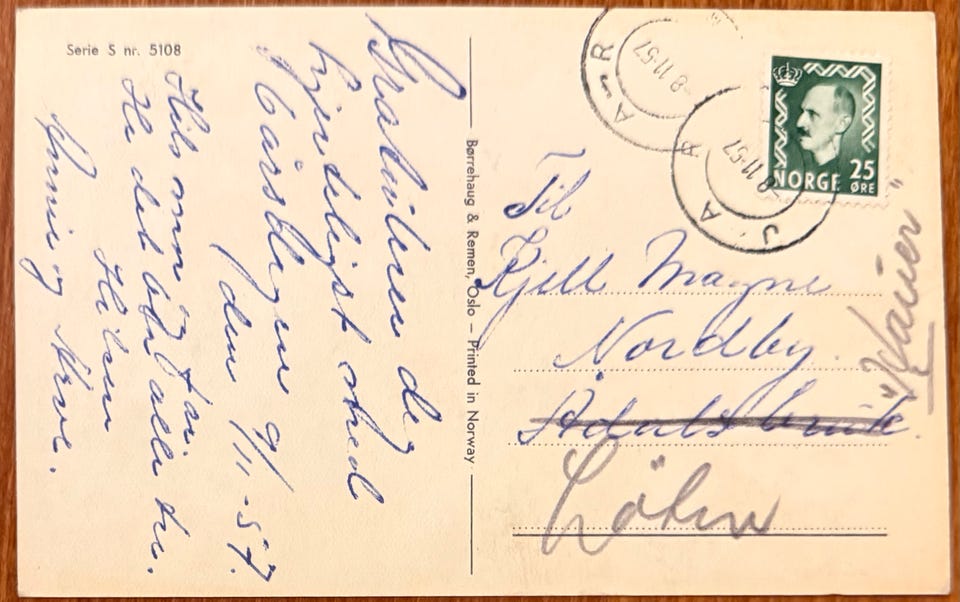 Serie S nr. 5108
Gratulerer deg
hjerteligst med
Gårsdagen
den 9/11-57.
Hils mor og far.
Ha det bra alle tre.
Hilsen
Anni og Arve.
Børrehaug & Remen, Oslo – Printed in Norway
8 11-57
8 11-57
NORGE 25 ØRE
Til
Kjell Magne
Nordby.
Ådalsbruk.
Løten